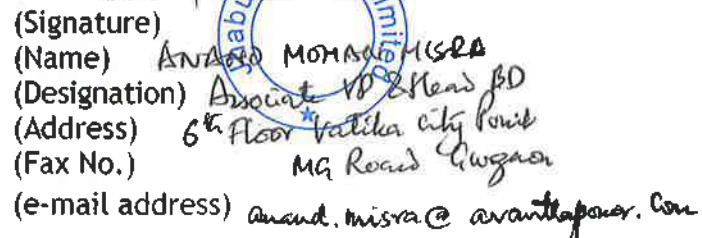 (Signature)
(Name) ANAND MOHAN MISRA
(Designation) Associate VP & Head BD
(Address) 6th Floor Vatika City Point
(Fax No.) MG Road Gurgaon
(e-mail address) anand.misra@avanthapower.com
Jhabu
imited